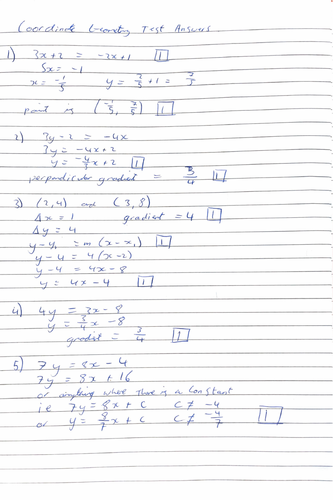 Coordinate Geometry Test Answers
1) 3x+2 = -2x+1 [1]
5x = -1
x = -1/5 y = 2/5 + 1 = 7/5
point is (-1/5, 7/5) [1]
2) 3y-2 = -4x
3y = -4x+2
y = -4/3x+2 [1]
perpendicular gradient = 3/4 [1]
3) (2,4) and (3,8)
Δx = 1 gradient = 4 [1]
Δy = 4
y-y₁ = m(x-x₁) [1]
y-4 = 4(x-2)
y-4 = 4x-8
y = 4x-4 [1]
4) 4y = 3x-8
y = 3/4x-8
gradient = 3/4 [1]
5) 7y = 8x-4
7y = 8x+16
or anything where there is a constant
ie 7y = 8x+c c≠-4
or y = 8/7x+c c≠-4/7 [1]